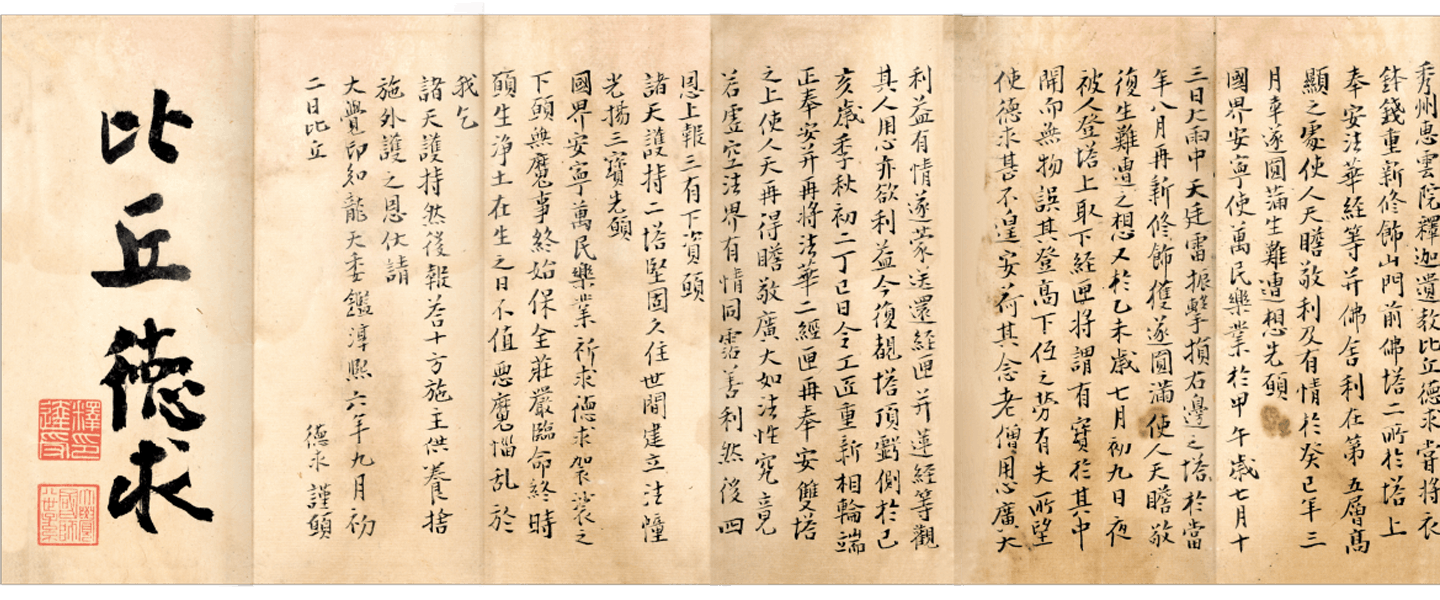 秀州惠雲院釋迦遺教比丘德求嘗將衣
鉢錢重新修飾山門前佛塔二所於塔上
奉安法華経等并佛舍利在第五層髙
顯之處使人天瞻敬利及有情於癸巳年三
月畢遂圓蒲生難遭想先願
國界安寧使萬民樂業於甲午歲七月十
三日大雨中天廷雷振擊損右邊之塔於當
年八月再新修飾獲遂圓滿使人天瞻敬
復生難遭之想又於乙未歲七月初九日夜
被人登塔上取下経匣將謂有寶於其中
開而無物誤其登髙下之勞有失所望
使德求甚不遑安荷其念老僧用心廣大
利益有情遂蒙送還経匣并蓮經等觀
其人用心亦欲利益今復覩塔頂虧側於己
亥歲季秋初二丁巳日令工匠重新相輪端
正奉安并再將法華二經匣再奉安雙塔
之上使人天再得瞻敬廣大如法性究竟
若虛空法界有情同霑善利然後四
恩上報三有下資願
諸天護持二塔堅固久住世間建立法幢
光揚三寶先願
國界安寧萬民樂業祈求德求袈裟之
下願無魔事終始保全莊嚴臨命終時
願生淨土在生之日不值惡魔惱乱於
我乞
諸天護持然後報荅十方施主供養捨
施外護之恩伏請
大覺印知龍天委鑑淳熙六年九月初
二日比丘 德求 謹願
比丘德求